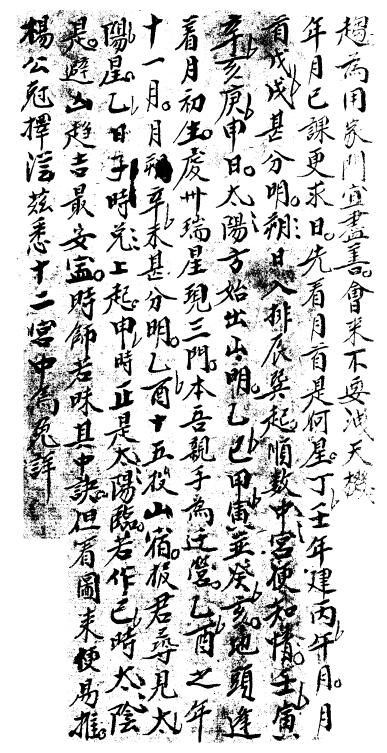 趨為用家門宜盡善會来不要洩天機
年月已課更求日先看月首是何星丁壬年建丙午月月
首戊戌甚分明朔日入排辰巽起順数中宮便知情壬寅
辛亥庚申日太陽方始出山明乙巳甲寅並癸亥地頭逢
着月初生處州瑞星現三門本吾親手為迁營乙酉之年
十一月月朔辛未甚分明乙酉十五投山宿扳君尋見太
陽星乙日子時兌上起申時正是太陽臨若作巳時太陰
是避凶趨吉最安寍時師若昧其中訣但看圖来便易推
楊公冠擇滛玆悉十二宮中為免詳